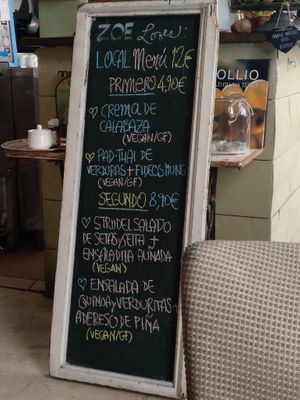 ZOE Loves:
LOCAL Menú 12€
PRIMERO 4,90€
CREMA DE
CALABAZA
(VEGAN/GF)
PAD-THAI DE
VERDURAS + FIDEOS MUNG
(VEGAN/GF)
SEGUNDO 8,90€
STRUDEL SALADO
DE SETAS y SEITA +
ENSALADITA ALIÑADA
(VEGAN)
ENSALADA DE
QUINOA y VERDURITAS +
ADERESO DE PIÑA
(VEGAN/GF)
OLLIO